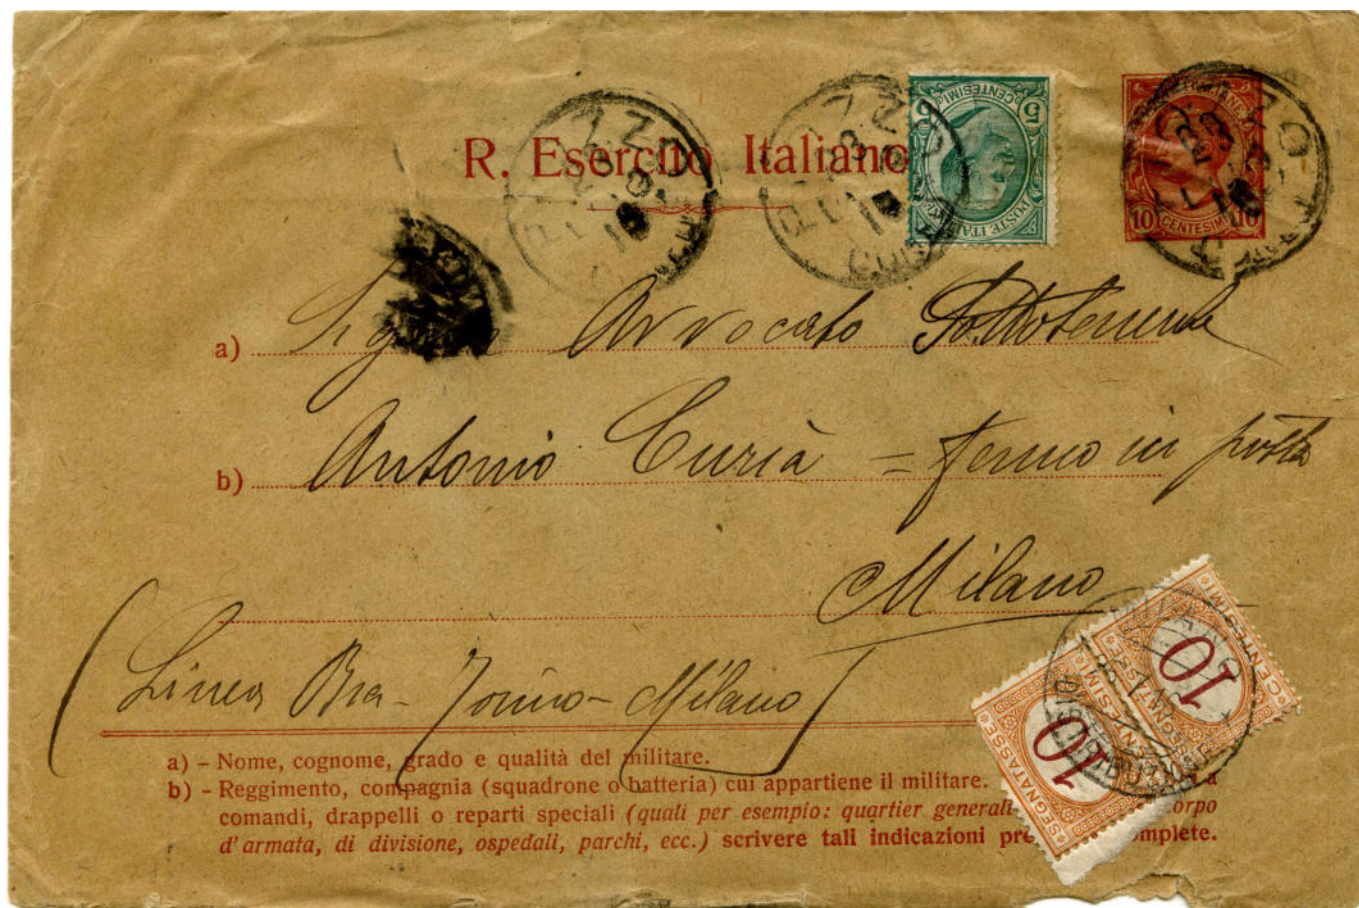 R. Esercito Italiano
5 CENTESIMI 5
POSTE ITAL
10 CENTESIMI 10
a) Avvocato Sottotenente
b) Antonio Curià = fermo in posta
Milano
(Linea Bra - Torino - Milano)
10
SEGNATASSE
CENTESIMI
10
SEGNATASSE
CENTESIMI
a) - Nome, cognome, grado e qualità del militare.
b) - Reggimento, compagnia (squadrone o batteria) cui appartiene il militare. a
comandi, drappelli o reparti speciali (quali per esempio: quartier generali orpo
d'armata, di divisione, ospedali, parchi, ecc.) scrivere tali indicazioni pre mplete.